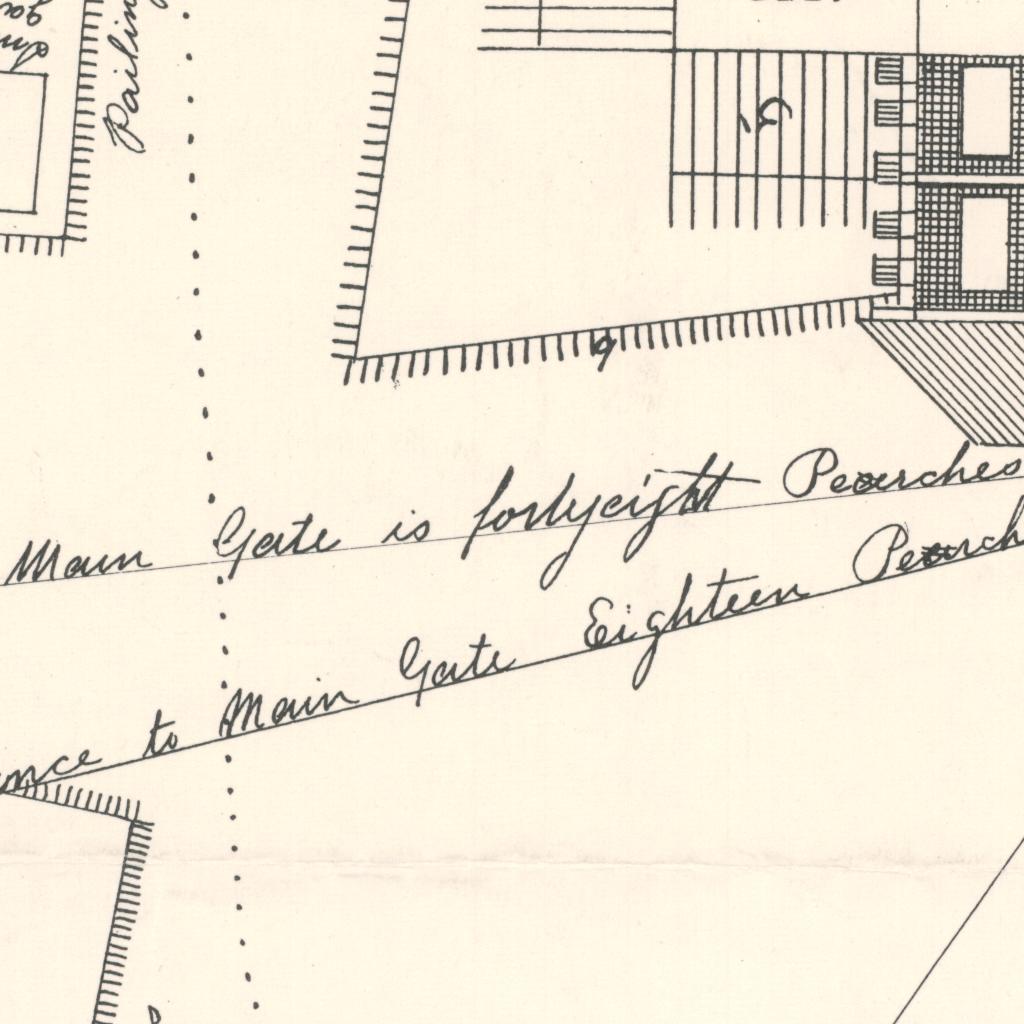 Pailing
G
9
Main Gate is fortyeight Pearches
ence to Main Gate Eighteen Pearch